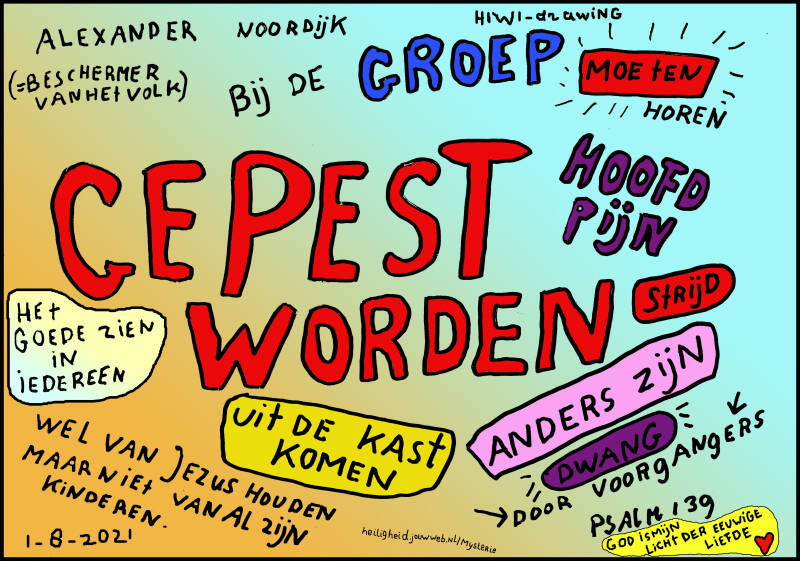 ALEXANDER NOORDIJK
(=BESCHERMER
VAN HET VOLK)
HIWI-drawing
BIJ DE GROEP
MOETEN
HOREN
GEPEST
WORDEN
HOOFD
PIJN
STRIJD
HET
GOEDE ZIEN
IN
IEDEREEN
UIT DE KAST
KOMEN
ANDERS ZIJN
DWANG
DOOR VOORGANGERS
WEL VAN JEZUS HOUDEN
MAAR NIET VAN AL ZIJN
KINDEREN.
1-8-2021
heiligheid.jouwweb.nl/Mysterie
PSALM 139
GOD IS MIJN
LICHT DER EEUWIGE
LIEFDE